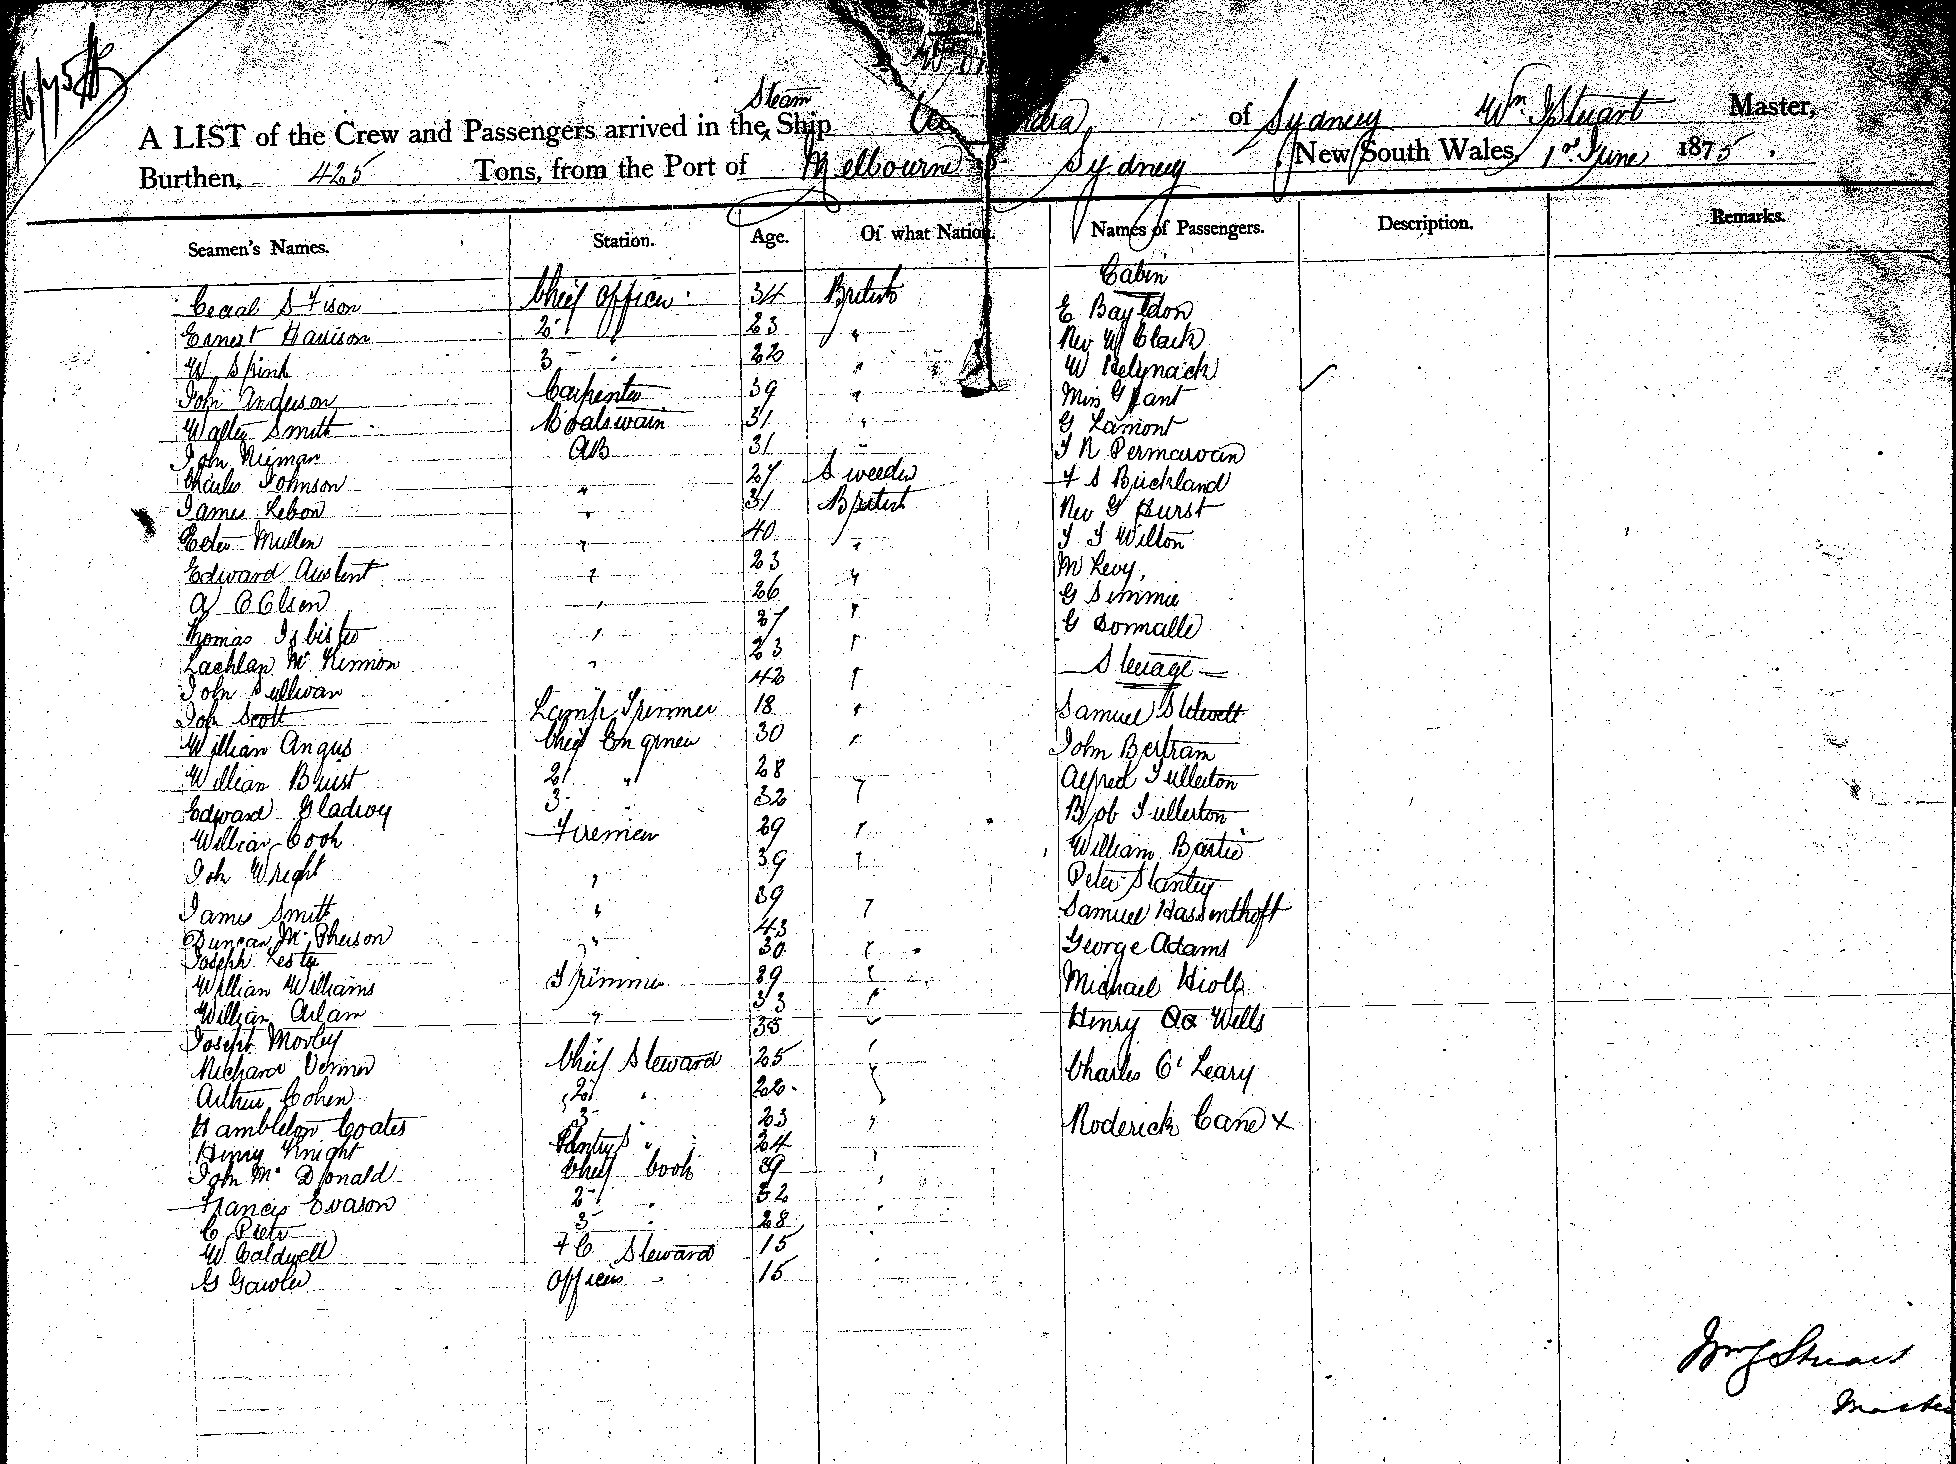 A LIST of the Crew and Passengers arrived in the Steam Ship of Sydney Wm J Stuart Master,
Burthen, 425 Tons, from the Port of Melbourne Sydney New South Wales, 1st June 1875.
Seamen's Names. Station. Age. Of what Nation. Names of Passengers. Description. Remarks.
Cabin
Cecial S Fison Chief Officer 34 British E Bayldon
Ernest Harrison 2 " 23 " Rev W Clark
W Spink 3 " 22 " W Kelynack
John Anderson Carpenter 39 " Miss Grant
Walter Smith Boatswain 31 " G Lamont
John Nieman AB 31 " J R Permarvan
Charles Johnson " 27 Sweeden F S Buckland
James Lebon " 31 British Rev G Hurst
Peter Mullen " 40 " J J Wilton
Edward Austent " 23 " M Levy,
A C Olsen " 26 " G Simmie
Thomas Isbister " 27 " G Donnalle
Lachlan McKinnon " 23 " Steerage
John Sullivan 42 "
John Scott Lamp Trimmer 18 " Samuel Stilwell
William Angus Chief Engineer 30 " John Bertram
William Buist 2 " 28 Alfred Fullerton
Edward Gladroy 3 " 32 " Bob Fullerton
William Cook Firemen 29 " William Bartie
John Wright " 39 " Peter Stanley
James Smith " 39 " Samuel Hassenthoft
Duncan McPherson " 43 George Adams
Joseph Lester 30 "
William Williams Trimmer 29 " Michael Hioll
William Adam " 33 " Henry Wells
Joseph Morley " 35 "
Richard Vermer Chief Steward 25 " Charles O'Leary
Arthur Cohen 2 " 22 "
Hambleton Coates 3 " 23 " Roderick Cane x
Henry Knight Pantry S " 24
John McDonald Chief Cook 39 "
Francis Evason 2 " 32 "
C Peter 3 " 28 "
W Caldwell F C Steward 15 "
G Gawler Officers " 15 "
Wm J Stuart
Master